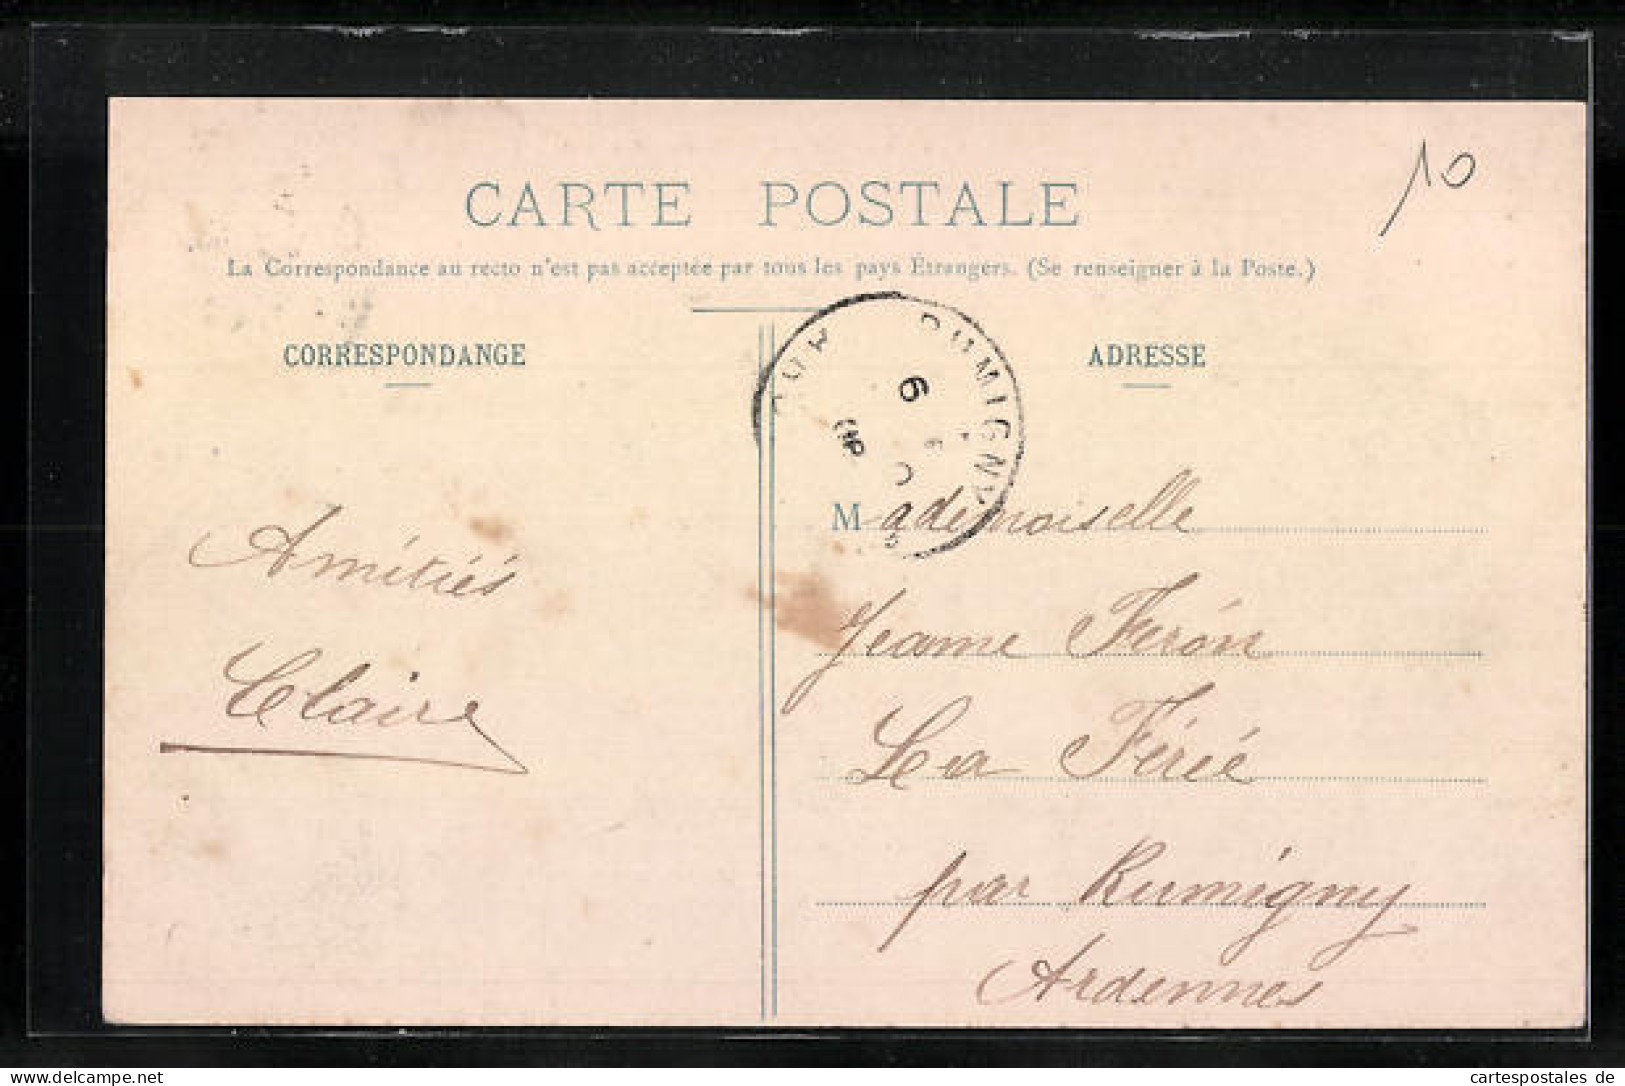 10
CARTE POSTALE
La Correspondance au recto n'est pas acceptée par tous les pays Étrangers. (Se renseigner à la Poste.)
CORRESPONDANCE
ADRESSE
RUMIGNY
6
Amitiés
Claire
Mademoiselle
Jeanne Feron
La Férée
par Rumigny
Ardennes
delcampe.net
cartespostales de